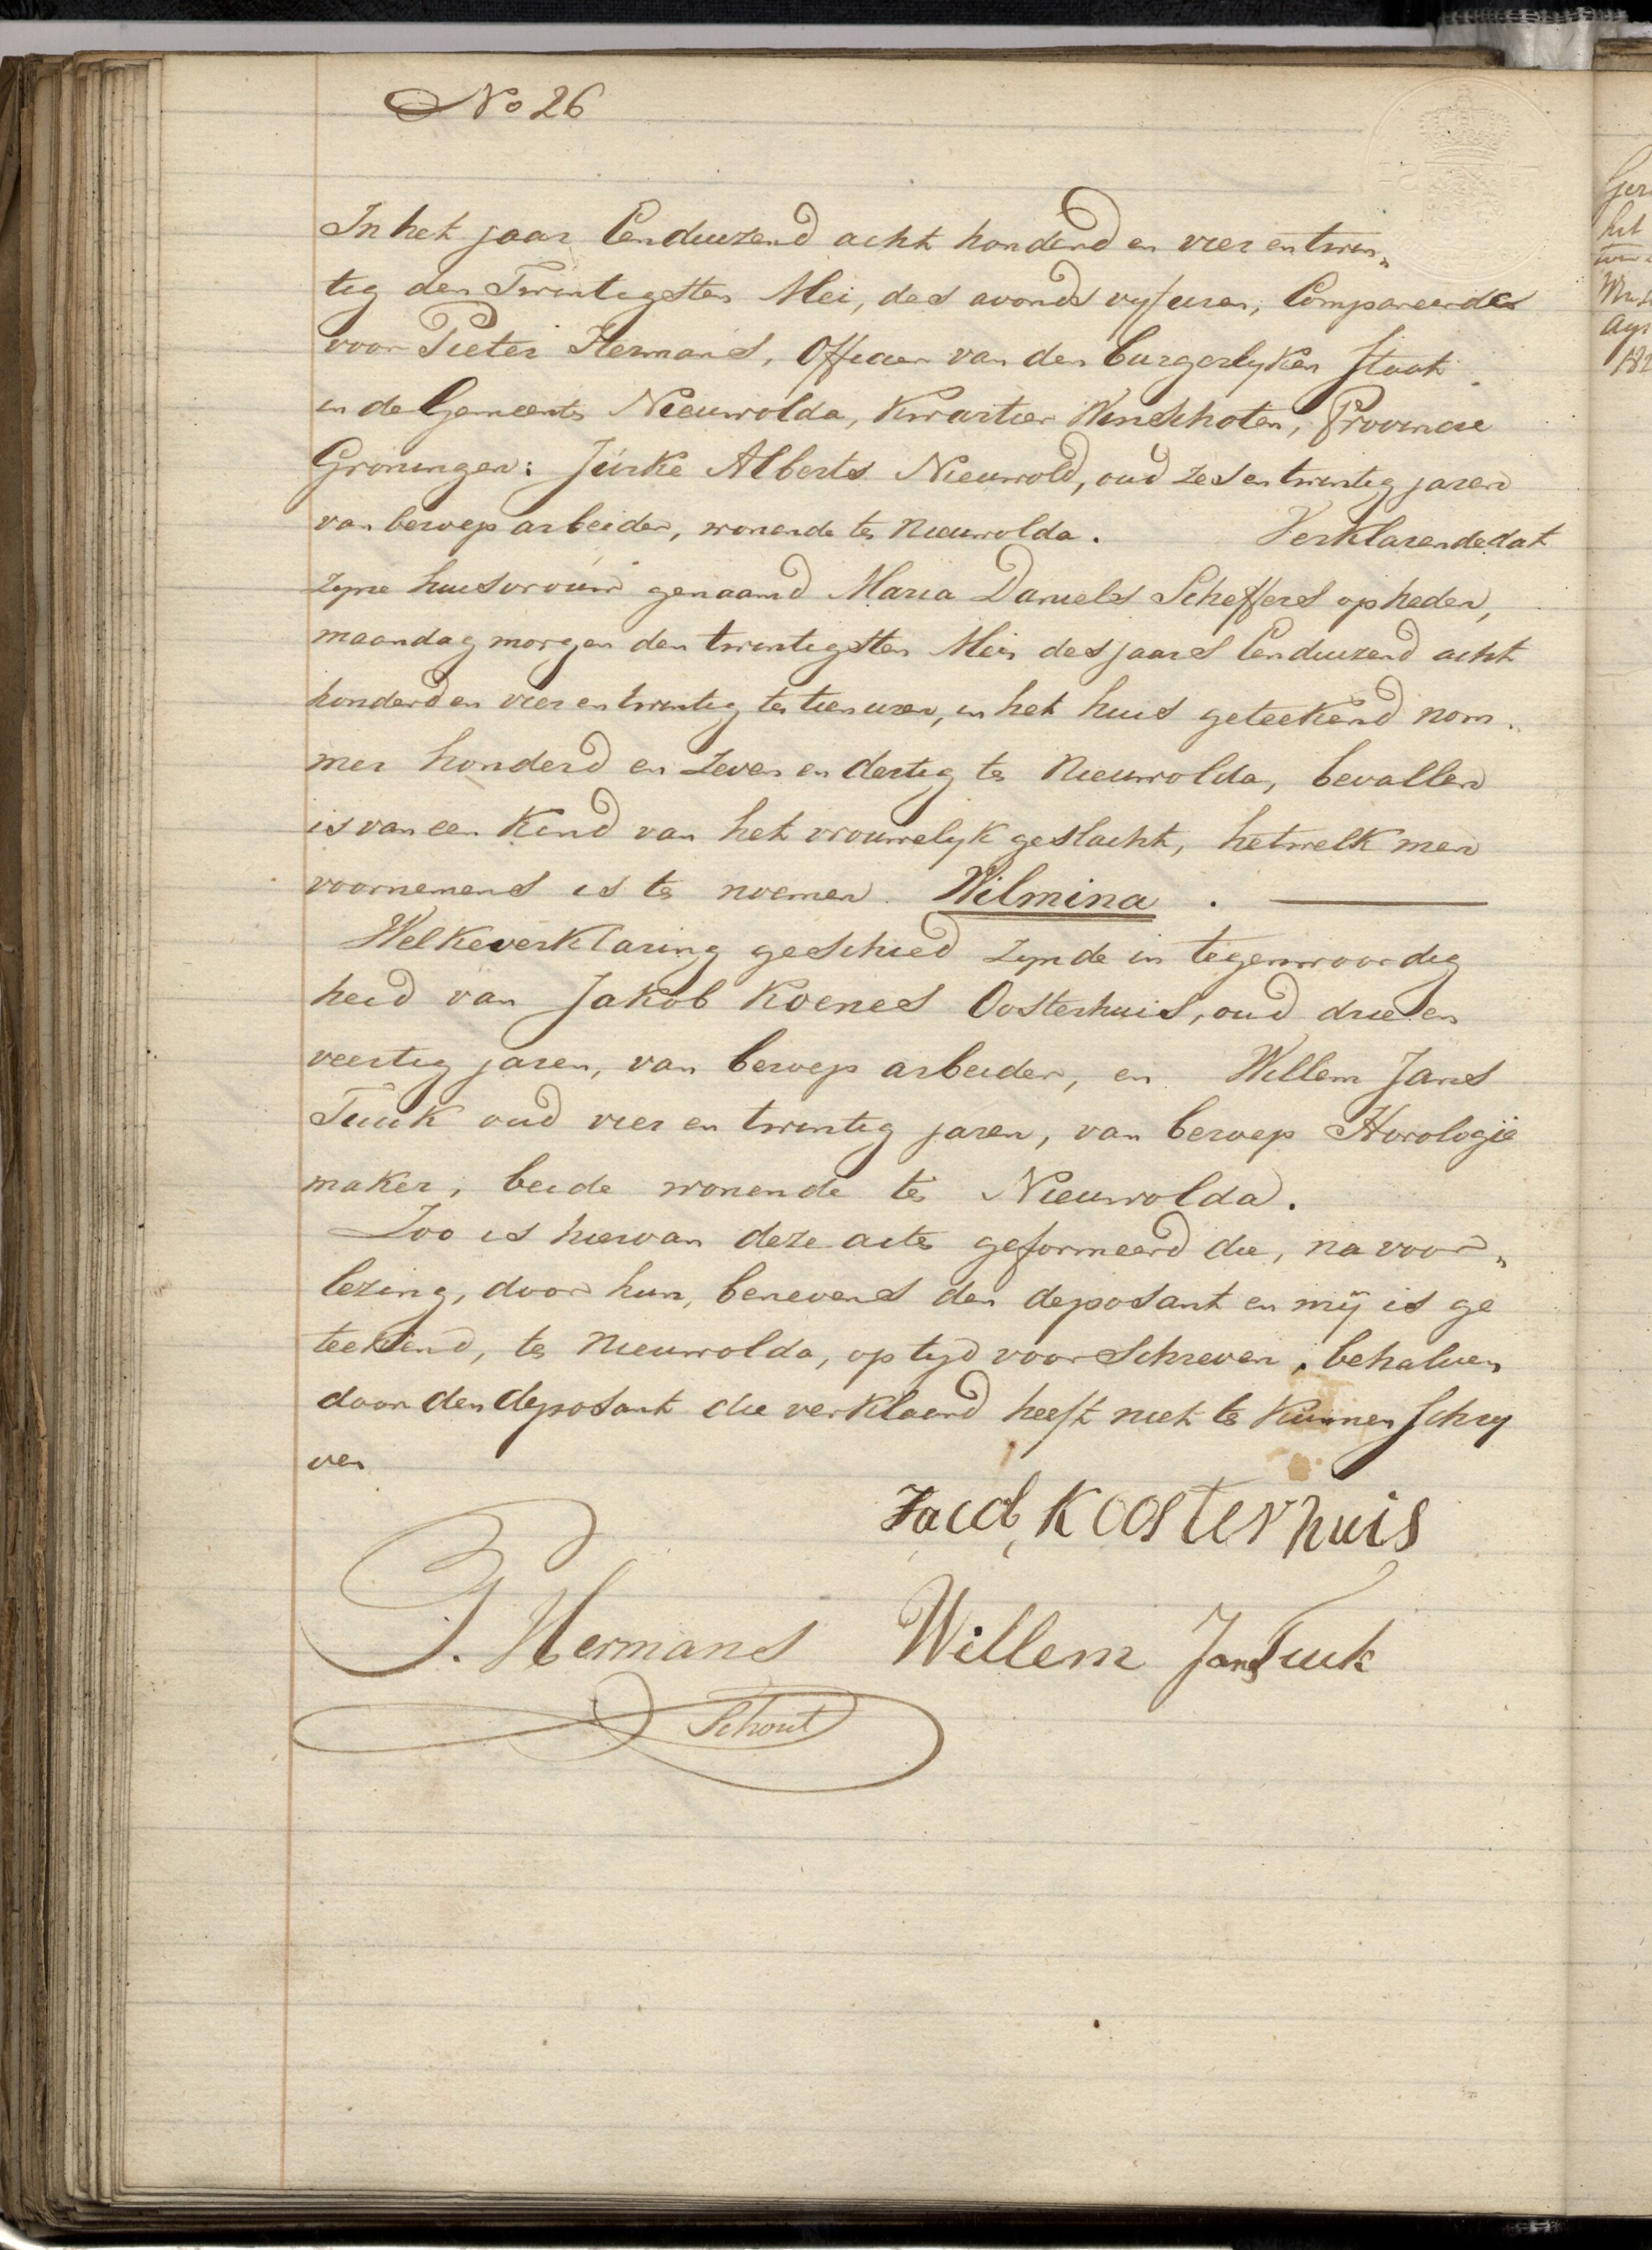 No 26
In het jaar Eenduizend acht honderd en vier en twin„
tig den Twintigsten Mei, des avonds vyf uren, Compareerde
voor Pieter Hermans, Officier van den burgerlyken Staat
in de Gemeente Nieuwolda, Kwartier Winschoten, Provincie
Groningen: Jurke Alberts Nieuwold, oud zes en twintig jaren
van beroep arbeider, wonende te Nieuwolda. Verklarende dat
zyne huisvrouw genaamd Maria Daniels Scheffers op heden,
maandag morgen den twintigsten Mei des jaars Eenduizend acht
honderd en vier en twintig te tien uren, in het huis geteekend nom„
mer honderd en zeven en dertig te Nieuwolda, bevallen
is van een Kind van het vrouwelyk geslacht, hetwelk men
voornemens is te noemen Wilmina .
Welke verklaring geschied zynde in tegenwoordig
heid van Jakob Koenes Oosterhuis, oud drie en
veertig jaren, van beroep arbeider, en Willem Jans
Tuuk oud vier en twintig jaren, van beroep Horologie
maker, beide wonende te Nieuwolda.
Zoo is hiervan deze acte geformeerd die, na voor„
lezing, door hun, benevens den deposant en mij is ge
teekend, te Nieuwolda, op tyd voorschreven, behalven
door den deposant die verklaard heeft niet te kunnen schry
ven
Jacob K Oosterhuis
P. Hermans Willem Jans Tuuk
Schout